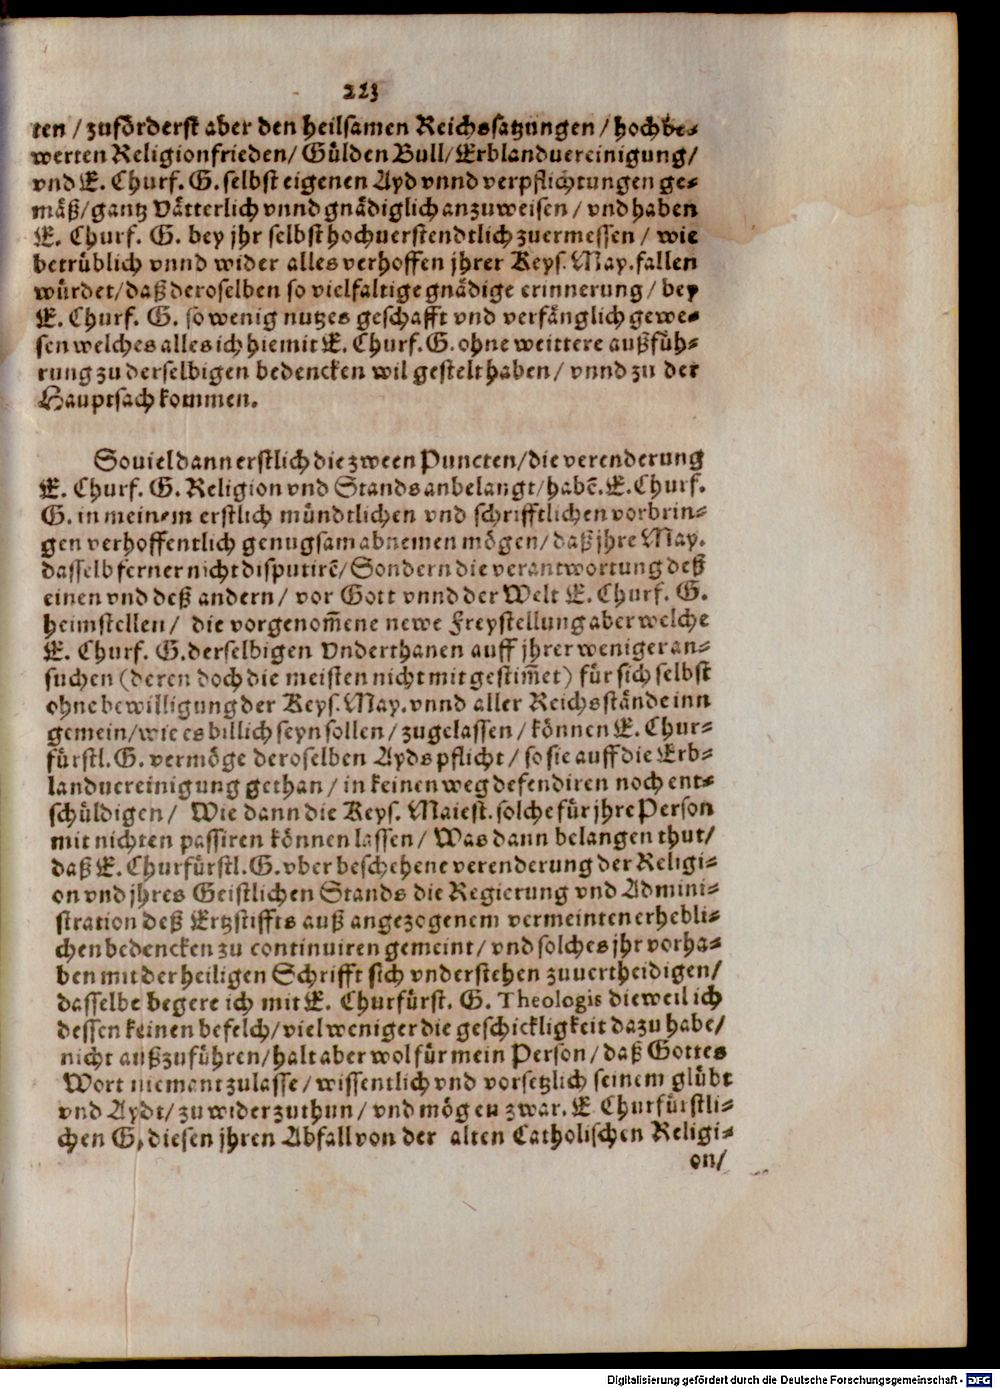 223
ten / zuförderst aber den heilsamen Reichssatzungen / hochbe-
werten Religionfrieden/ Gülden Bull/ Erblanduereinigung/
vnd E. Churf. G. selbst eigenen Ayd vnnd verpflichtungen ge-
mäß/gantz Vätterlich vnnd gnädiglich anzuweisen / vnd haben
E. Churf. G. bey jhr selbst hochuerstendtlich zuermessen / wie
betrüblich vnnd wider alles verhoffen jhrer Keys. May. fallen
würdet/ daß deroselben so vielfaltige gnädige erinnerung / bey
E. Churf. G. so wenig nutzes geschafft vnd verfänglich gewe-
sen welches alles ich hiemit E. Churf. G. ohne weittere außfüh-
rung zu derselbigen bedencken wil gestelt haben / vnnd zu der
Hauptsach kommen.
Souiel dann erstlich die zween Puncten/die verenderung
E. Churf. G. Religion vnd Stands anbelangt/habẽ. E. Churf.
G. in meinem erstlich mündtlichen vnd schrifftlichen vorbrin-
gen verhoffentlich genugsam abnemen mögen/ daß jhre May.
dasselb ferner nicht disputirẽ/ Sondern die verantwortung deß
einen vnd deß andern / vor Gott vnnd der Welt E. Churf. G.
heimstellen / die vorgenom̃ene newe Freystellung aber welche
E. Churf. G. derselbigen Vnderthanen auff jhrer weniger an-
suchen (deren doch die meisten nicht mit gestim̃et) für sich selbst
ohne bewilligung der Keys. May. vnnd aller Reichsstände inn
gemein/wie es billich seyn sollen / zugelassen / können E. Chur-
fürstl. G. vermöge deroselben Aydspflicht / so sie auff die Erb-
landuereinigung gethan / in keinen weg defendiren noch ent-
schüldigen / Wie dann die Keys. Maiest. solche für jhre Person
mit nichten passiren können lassen / Was dann belangen thut/
daß E. Churfürstl. G. vber beschehene verenderung der Religi-
on vnd jhres Geistlichen Stands die Regierung vnd Admini-
stration deß Ertzstiffts auß angezogenem vermeinten erhebli-
chen bedencken zu continuiren gemeint/ vnd solches jhr vorha-
ben mit der heiligen Schrifft sich vnderstehen zuuertheidigen/
dasselbe begere ich mit E. Churfürst. G. Theologis dieweil ich
dessen keinen befelch/ viel weniger die geschickligkeit dazu habe/
nicht außzuführen/ halt aber wol für mein Person / daß Gottes
Wort niemant zulasse / wissentlich vnd vorsetzlich seinem glübt
vnd Aydt / zu wider zuthun / vnd mögen zwar. E Churfürstli-
chen G, diesen jhren Abfall von der alten Catholischen Religi-
on/
Digitalisierung gefördert durch die Deutsche Forschungsgemeinschaft - DFG